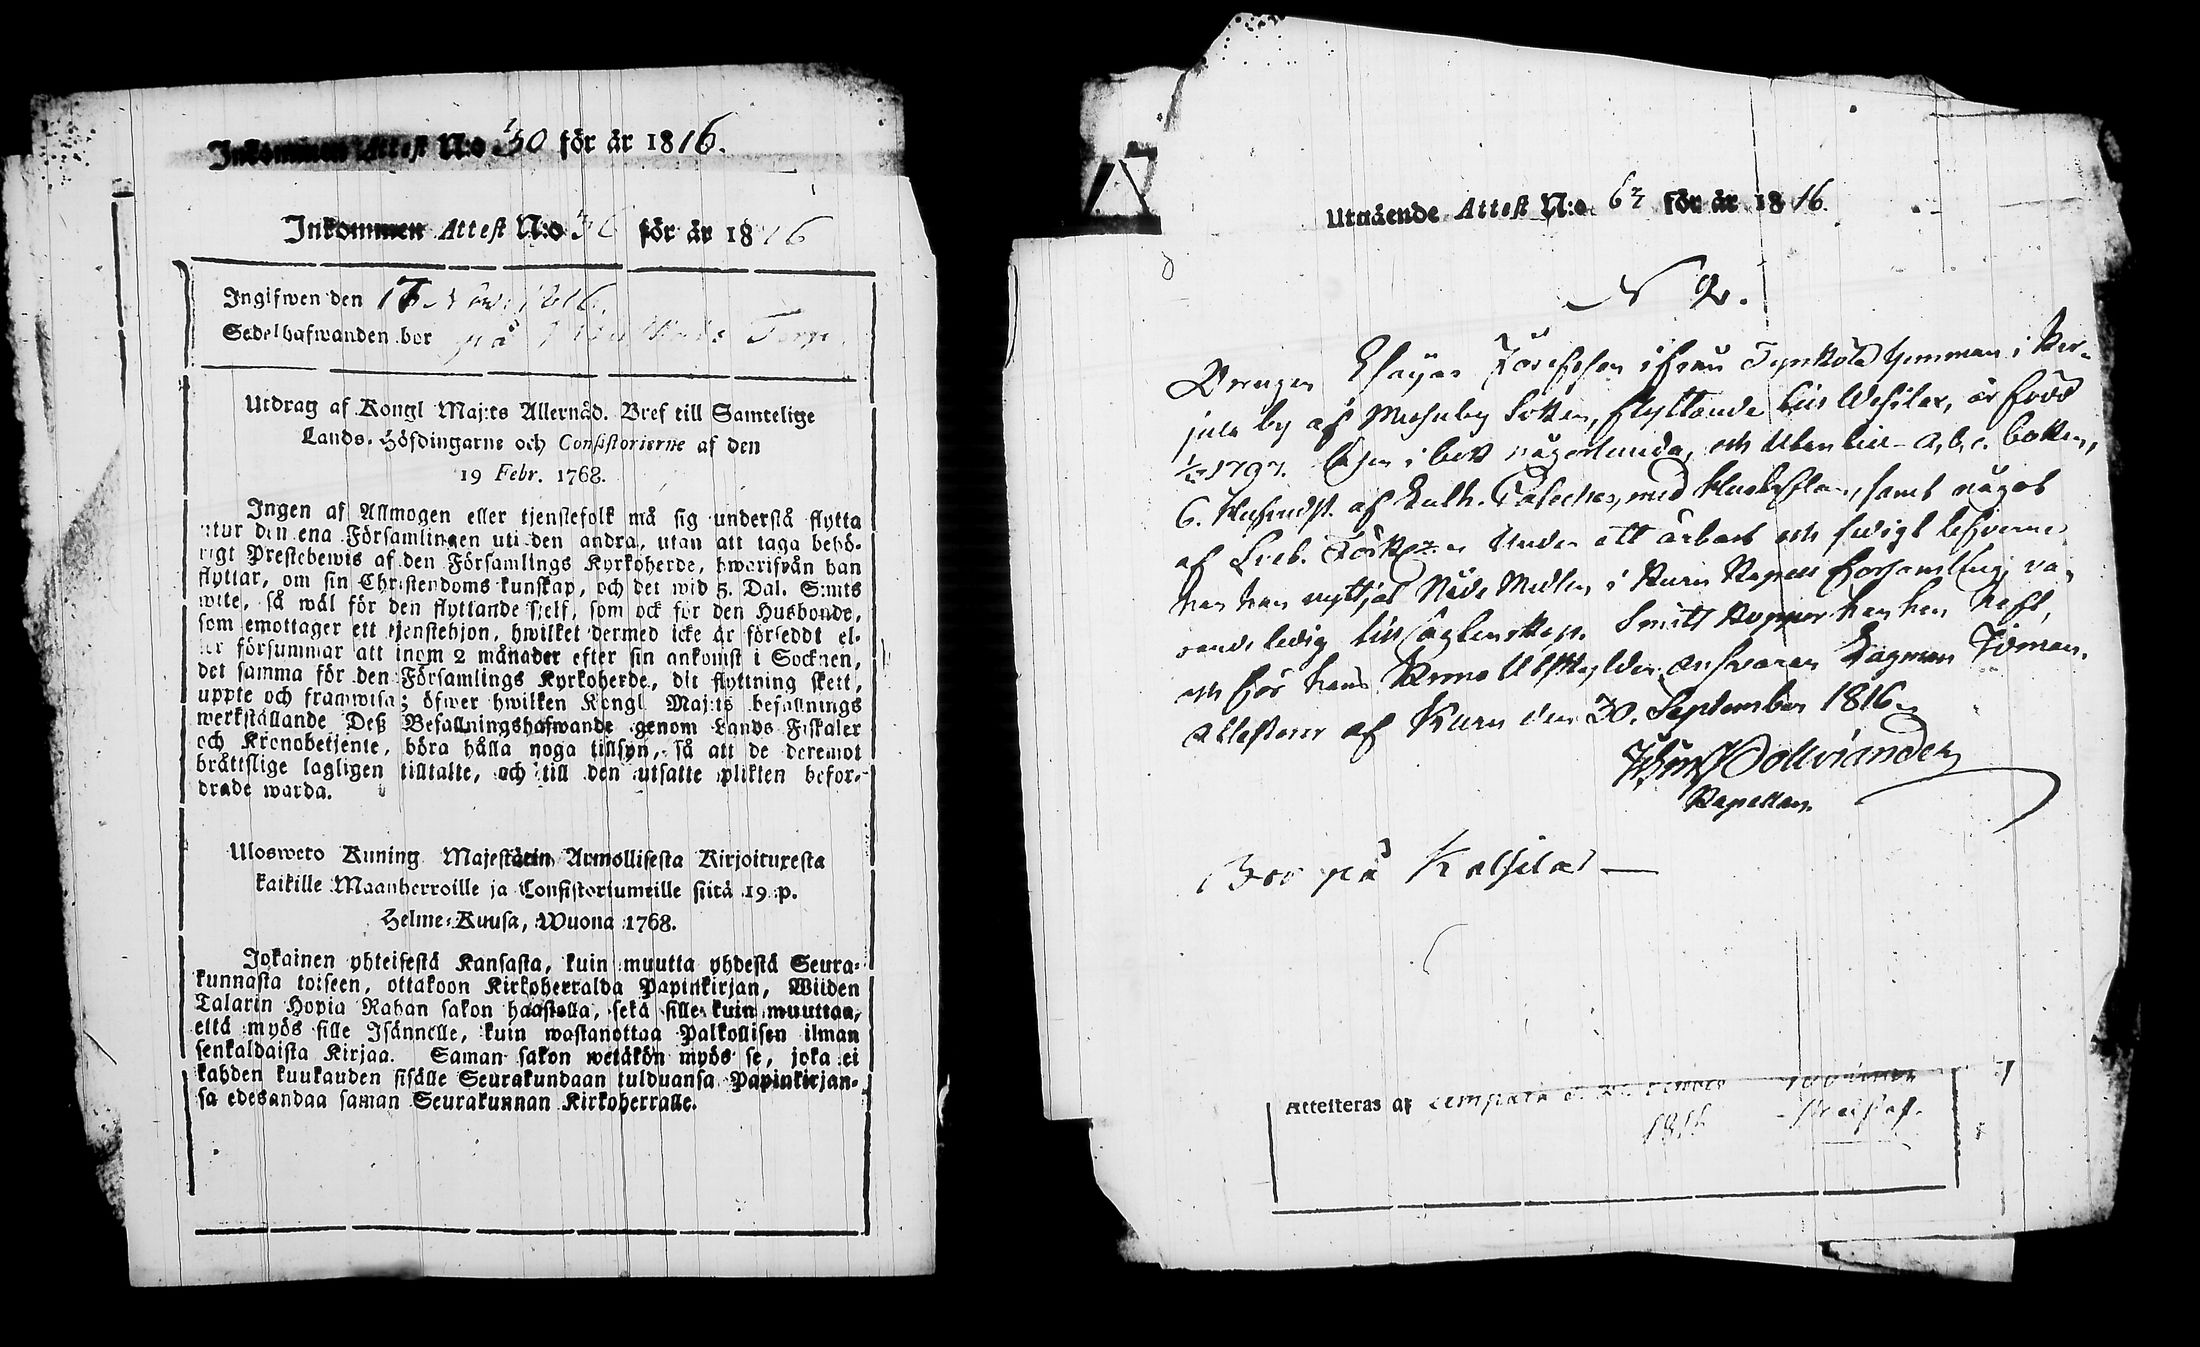 Inkommen Attest N:o 30 för år 1816.
Inkommen Attest N:o för år 1816
Ingifwen den 17 Nov. 1816.
Sedelhafwanden bor på Torp.
Utdrag af Kongl Maj:ts Allernåd. Bref till Samtelige
Lands-Höfdingarne och Consistorierne af den
19 Febr. 1768.
Ingen af Allmogen eller tjenstefolk må sig understå flytta
utur den ena Församlingen uti den andra, utan att taga behö-
rigt Prestebewis af den Församlings Kyrkoherde, hwarifrån han
flyttar, om sin Christendoms kunskap, och det wid 5. Dal. S:mts
wite, så wäl för den flyttande sjelf, som ock för den Husbonde,
som emottager ett tjenstehjon, hwilket dermed icke är förseddt el-
ler försummar att inom 2 månader efter sin ankomst i Socknen,
det samma för den Församlings Kyrkoherde, dit flyttning skett,
uppte och framwisa; öfwer hwilken Kongl Maj:ts befallnings
werkställande Deß Befallningshafwande genom Lands Fiskaler
och Kronobetjente, böra hålla noga tillsyn, så att de deremot
bråttslige lagligen tilltalte, och till den utsatte plikten befor-
drade warda.
Ulosweto Kuning Majestätin Armollisesta Kirjoituxesta
kaikille Maanherroille ja Consistoriumeille siitä 19 p.
Helme-Kuusa, Wuona 1768.
Jokainen yhteisestä Kansasta, kuin muutta yhdestä Seura-
kunnasta toiseen, ottakoon Kirkoherralda Papinkirjan, Wiiden
Talarin Hopia Rahan sakon haastolla, sekä sille kuin muuttaa,
että myös sille Isännelle, kuin wastanottaa Palkollisen ilman
senkaldaista Kirjaa. Saman sakon wetäkön myös se, joka ei
kahden kuukauden sisälle Seurakundaan tulduansa Papinkirjan-
sa edesandaa saman Seurakunnan Kirkoherralle.
Utgående Attest N:o 62 för år 1816.
N 2.
Drengen Esaias Josefsson ifrån Hemman i Ker-
jula by af Socken, flyttande till Wesilax, är född
1797. Läser i bok någorlunda, och utan till a, b, c. boken,
6. af med Hustaflan, samt något
af Sveb. Förkl. Under ett ärbart och fredigt lefverne
har han nyttjat Nåde Medlen i Kuru Kapell Församling, va-
rande ledig till ägtenskap. Smitt Koppor har han haft,
och för hans Krono Utskylder ansvarar Lagman Idman.
Attesterar af Kuru den 30. September 1816.
Kapellan.
Bor på
Attesteras af Lempälä
1816